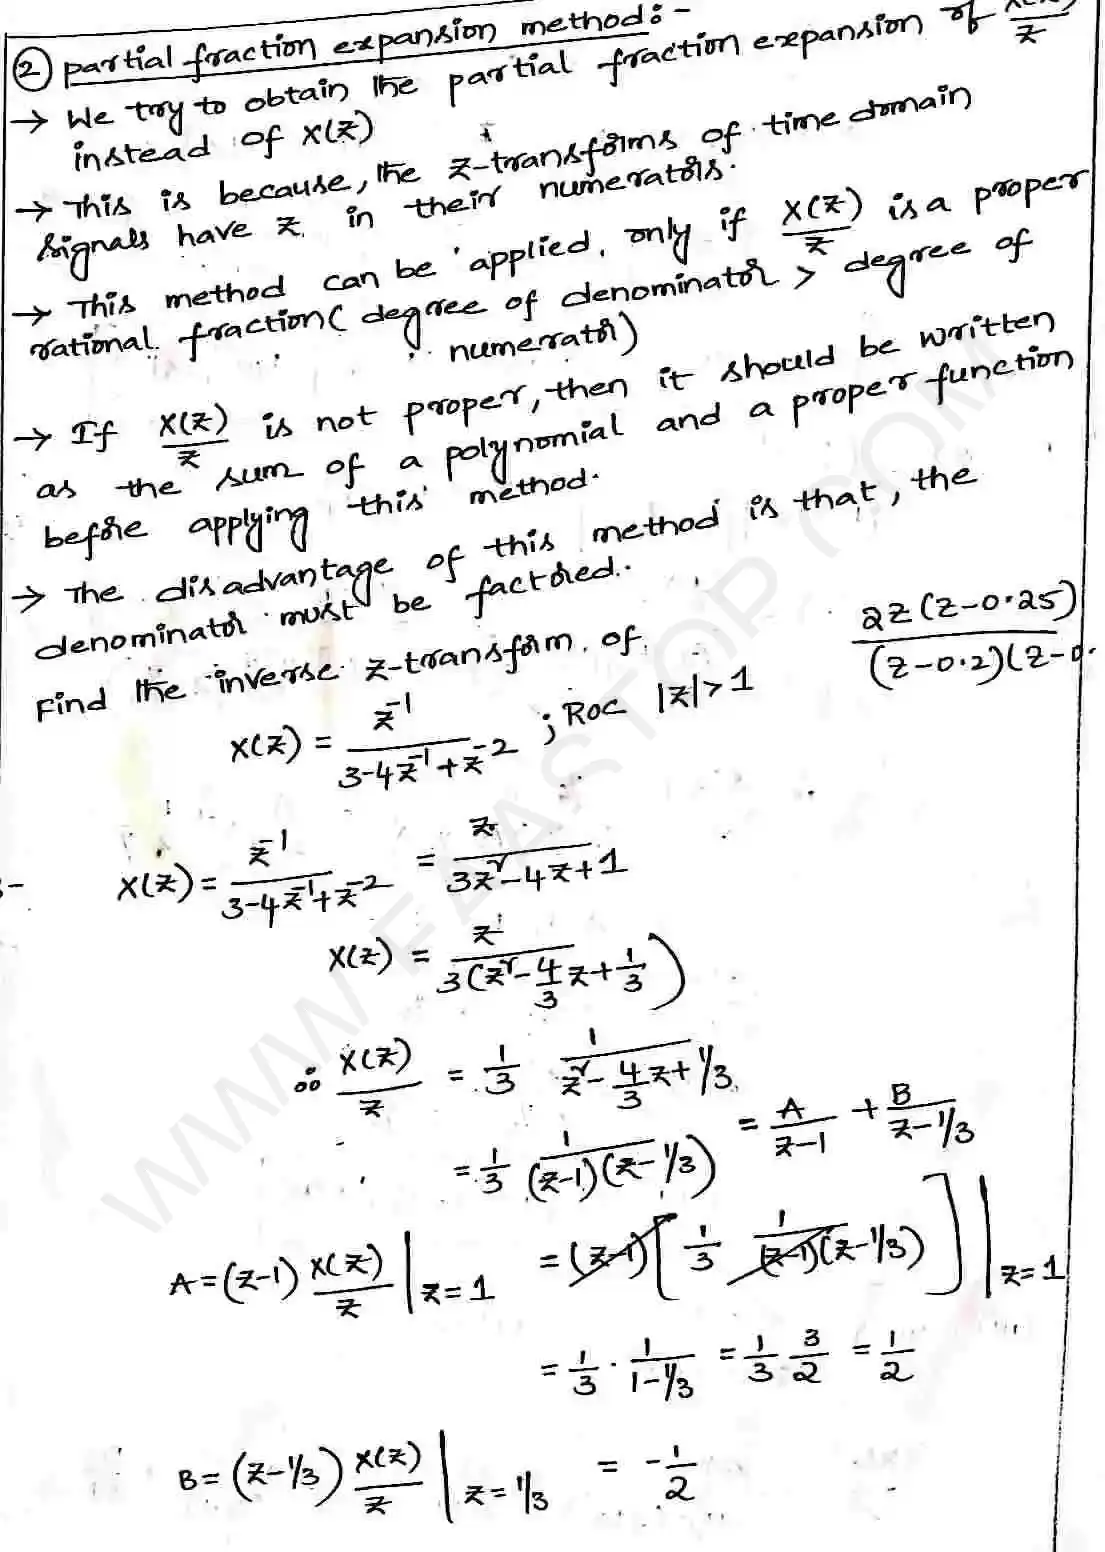 ② partial fraction expansion method:-
→ We try to obtain the partial fraction expansion of X(z)/z
instead of X(z)
→ This is because, the z-transforms of time domain
signals have z in their numerators.
→ This method can be applied, only if X(z)/z is a proper
rational fraction (degree of denominator > degree of
numerator)
→ If X(z)/z is not proper, then it should be written
as the sum of a polynomial and a proper function
before applying this method.
→ The disadvantage of this method is that, the
denominator must be factored.
Find the inverse z-transform of
2z(z-0.25)/(z-0.2)(z-0.
X(z) = z⁻¹/(3-4z⁻¹+z⁻²) ; ROC |z|>1
:- X(z) = z⁻¹/(3-4z⁻¹+z⁻²) = z/(3z²-4z+1)
X(z) = z/3(z²-4/3 z+1/3)
∴ X(z)/z = 1/3 1/(z²-4/3 z+1/3)
= 1/3 1/(z-1)(z-1/3) = A/(z-1) + B/(z-1/3)
A=(z-1) X(z)/z |z=1 = (z-1)[1/3 1/(z-1)(z-1/3)]|z=1
= 1/3 · 1/(1-1/3) = 1/3 3/2 = 1/2
B=(z-1/3) X(z)/z |z=1/3 = -1/2
WWW.FAASTOP.COM